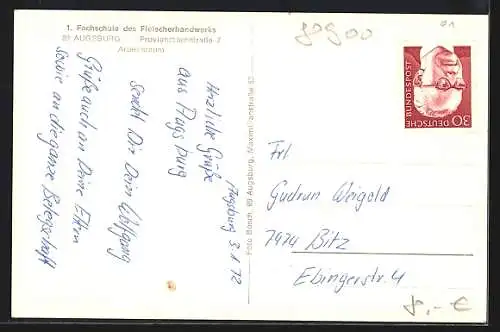 1. Fachschule des Fleischerhandwerks
89 AUGSBURG Proviantbachstraße 2
Augsburg 3.1.72
Herzliche Grüße
aus Augsburg
sendet Dir Dein Wolfgang
Grüße auch an Deine Eltern
sowie an die ganze Belegschaft
Foto Bosch, 89 Augsburg, Maximilianstraße 57
80900
01
DEUTSCHE BUNDESPOST
30
Frl
Gudrun Weigold
7474 Bitz
Ebingerstr. 4
8,- €